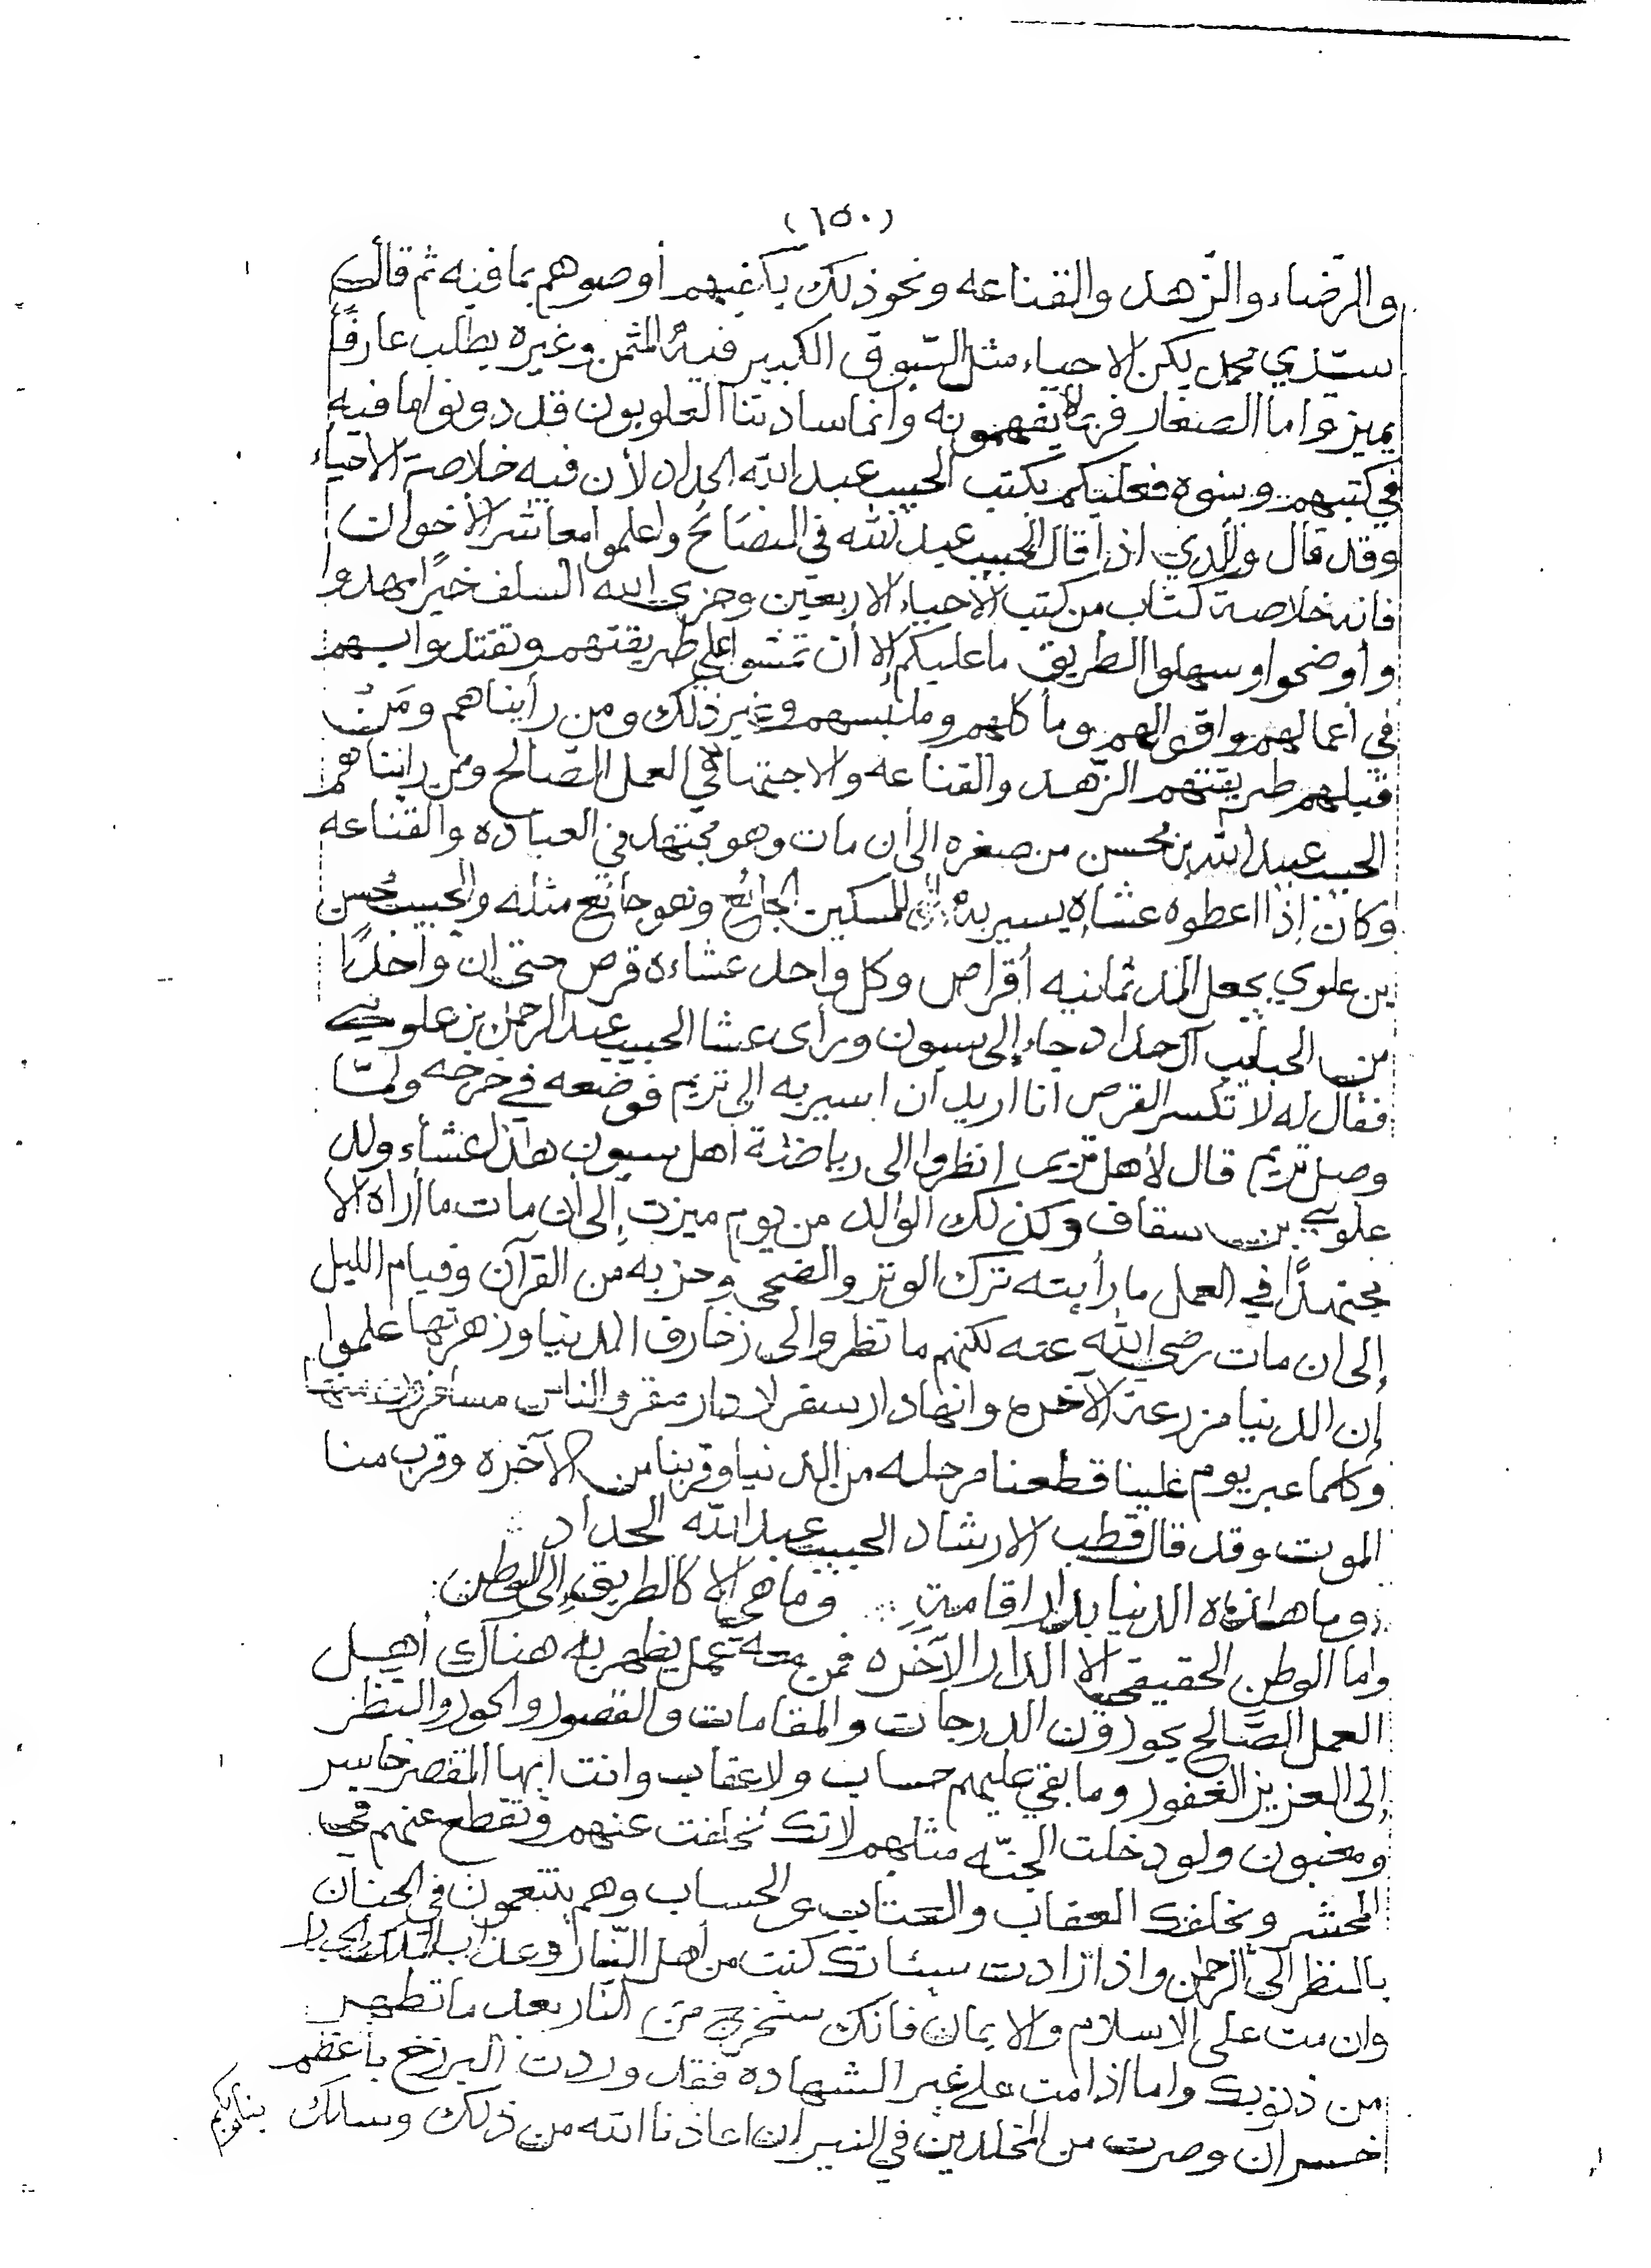 (١٥٠)
والرّضاء والزّهد والقناعه ونحو ذلك يكفيهم أوصوهم بما فيه ثم قال
سيّدي محمد يكن الاحياء مثل السّوق الكبير فيه المثمن وغيره يطلب عارفًا
يميز واما الصغار فربما لا يفهمونه وانما سادتنا العلويون قد دونوا ما فيه
في كتبهم وبينوه فعليكم بكتب الحبيب عبد الله الحداد لأن فيه خلاصة الاحياء
وقد قال والدي اذا قال الحبيب عبد الله في النصائح واعلموا معاشر الأخوان
فانه خلاصة كتاب من كتب الأحياء الاربعين وجزى الله السلف خيرًا مهدوا
وأوضحوا وسهلوا الطريق ما عليكم إلا أن تمشوا على طريقتهم وتقتدوا بهم
في اعمالهم واقوالهم ومأكلهم وملبسهم وغير ذلك ومن رأيناهم ومَنْ
قبلهم طريقتهم الزّهد والقناعه والاجتهاد في العمل الصّالح وممن رايناهم
الحبيب عبد الله بن محسن من صغره الى أن مات وهو مجتهد في العباده والقناعه
وكان إذا اعطوه عشاه يسير به للمسكين الجائع وهو جائع مثله والحبيب حُسن
بن علوي يجعل المد ثمانيه أقراص وكل واحد عشاءه قرص حتى ان واحدًا
من الحبايب آل حداد جاء إلى سيون ورأى عشا الحبيب عبد الرحمن بن علوي
فقال له لا تكسر القرص انا اريد ان اسير به الى تريم فوضعه في خرجه ولمّا
وصل تريم قال لأهل تريم انظروا الى رياضة اهل سيون هذا عشاء ولد
علوي بن سقاف وكذلك الوالد من يوم ميزت إلى ان مات ما أراه الا
مجتهدًا في العمل ما رأيته ترك الوتر والضحى وحزبه من القرآن وقيام الليل
إلى ان مات رضي الله عنه لكنهم ما نظروا الى زخارف الدنيا وزهرتها علموا
إن الدنيا مزرعة الآخره وانها دار سفر لا دار مقر والناس مسافرون منها
وكلما عبر يوم علينا قطعنا مرحله من الدنيا وقربنا من الآخره وقرب منا
الموت وقد قال قطب الارشاد الحبيب عبد الله الحداد
وما هذه الدنيا بدار اقامةٍ وما هي إلا كالطريقِ إلى الوطن
واما الوطن الحقيقي الا الدار الآخره فمن معه عمل يظهر به هناك أهل
العمل الصّالح يحوزون الدرجات والمقامات والقصور والحور والنظر
إلى العزيز الغفور وما بقي عليهم حساب ولا عقاب وانت ايها المقصر خاسر
ومغبون ولو دخلت الجنّه مثلهم لانك تخلفت عنهم وتقطع عنهم في
المحشر وتخلفك العقاب والعتاب والحساب وهم يتنعمون في الجنان
بالنظر الى الرحمن واذا زادت سيئاتك كنت من أهل النّار وعذاب الملك الجبار
وان مت على الاسلام والايمان فانك ستخرج من النار بعد ما تطهر
من ذنوبك واما اذا مت على غير الشهاده فقد وردت البرزخ بأعظم
خسران وصرت من المخلدين في النيران اعاذنا الله من ذلك وسلك بنا وبكم